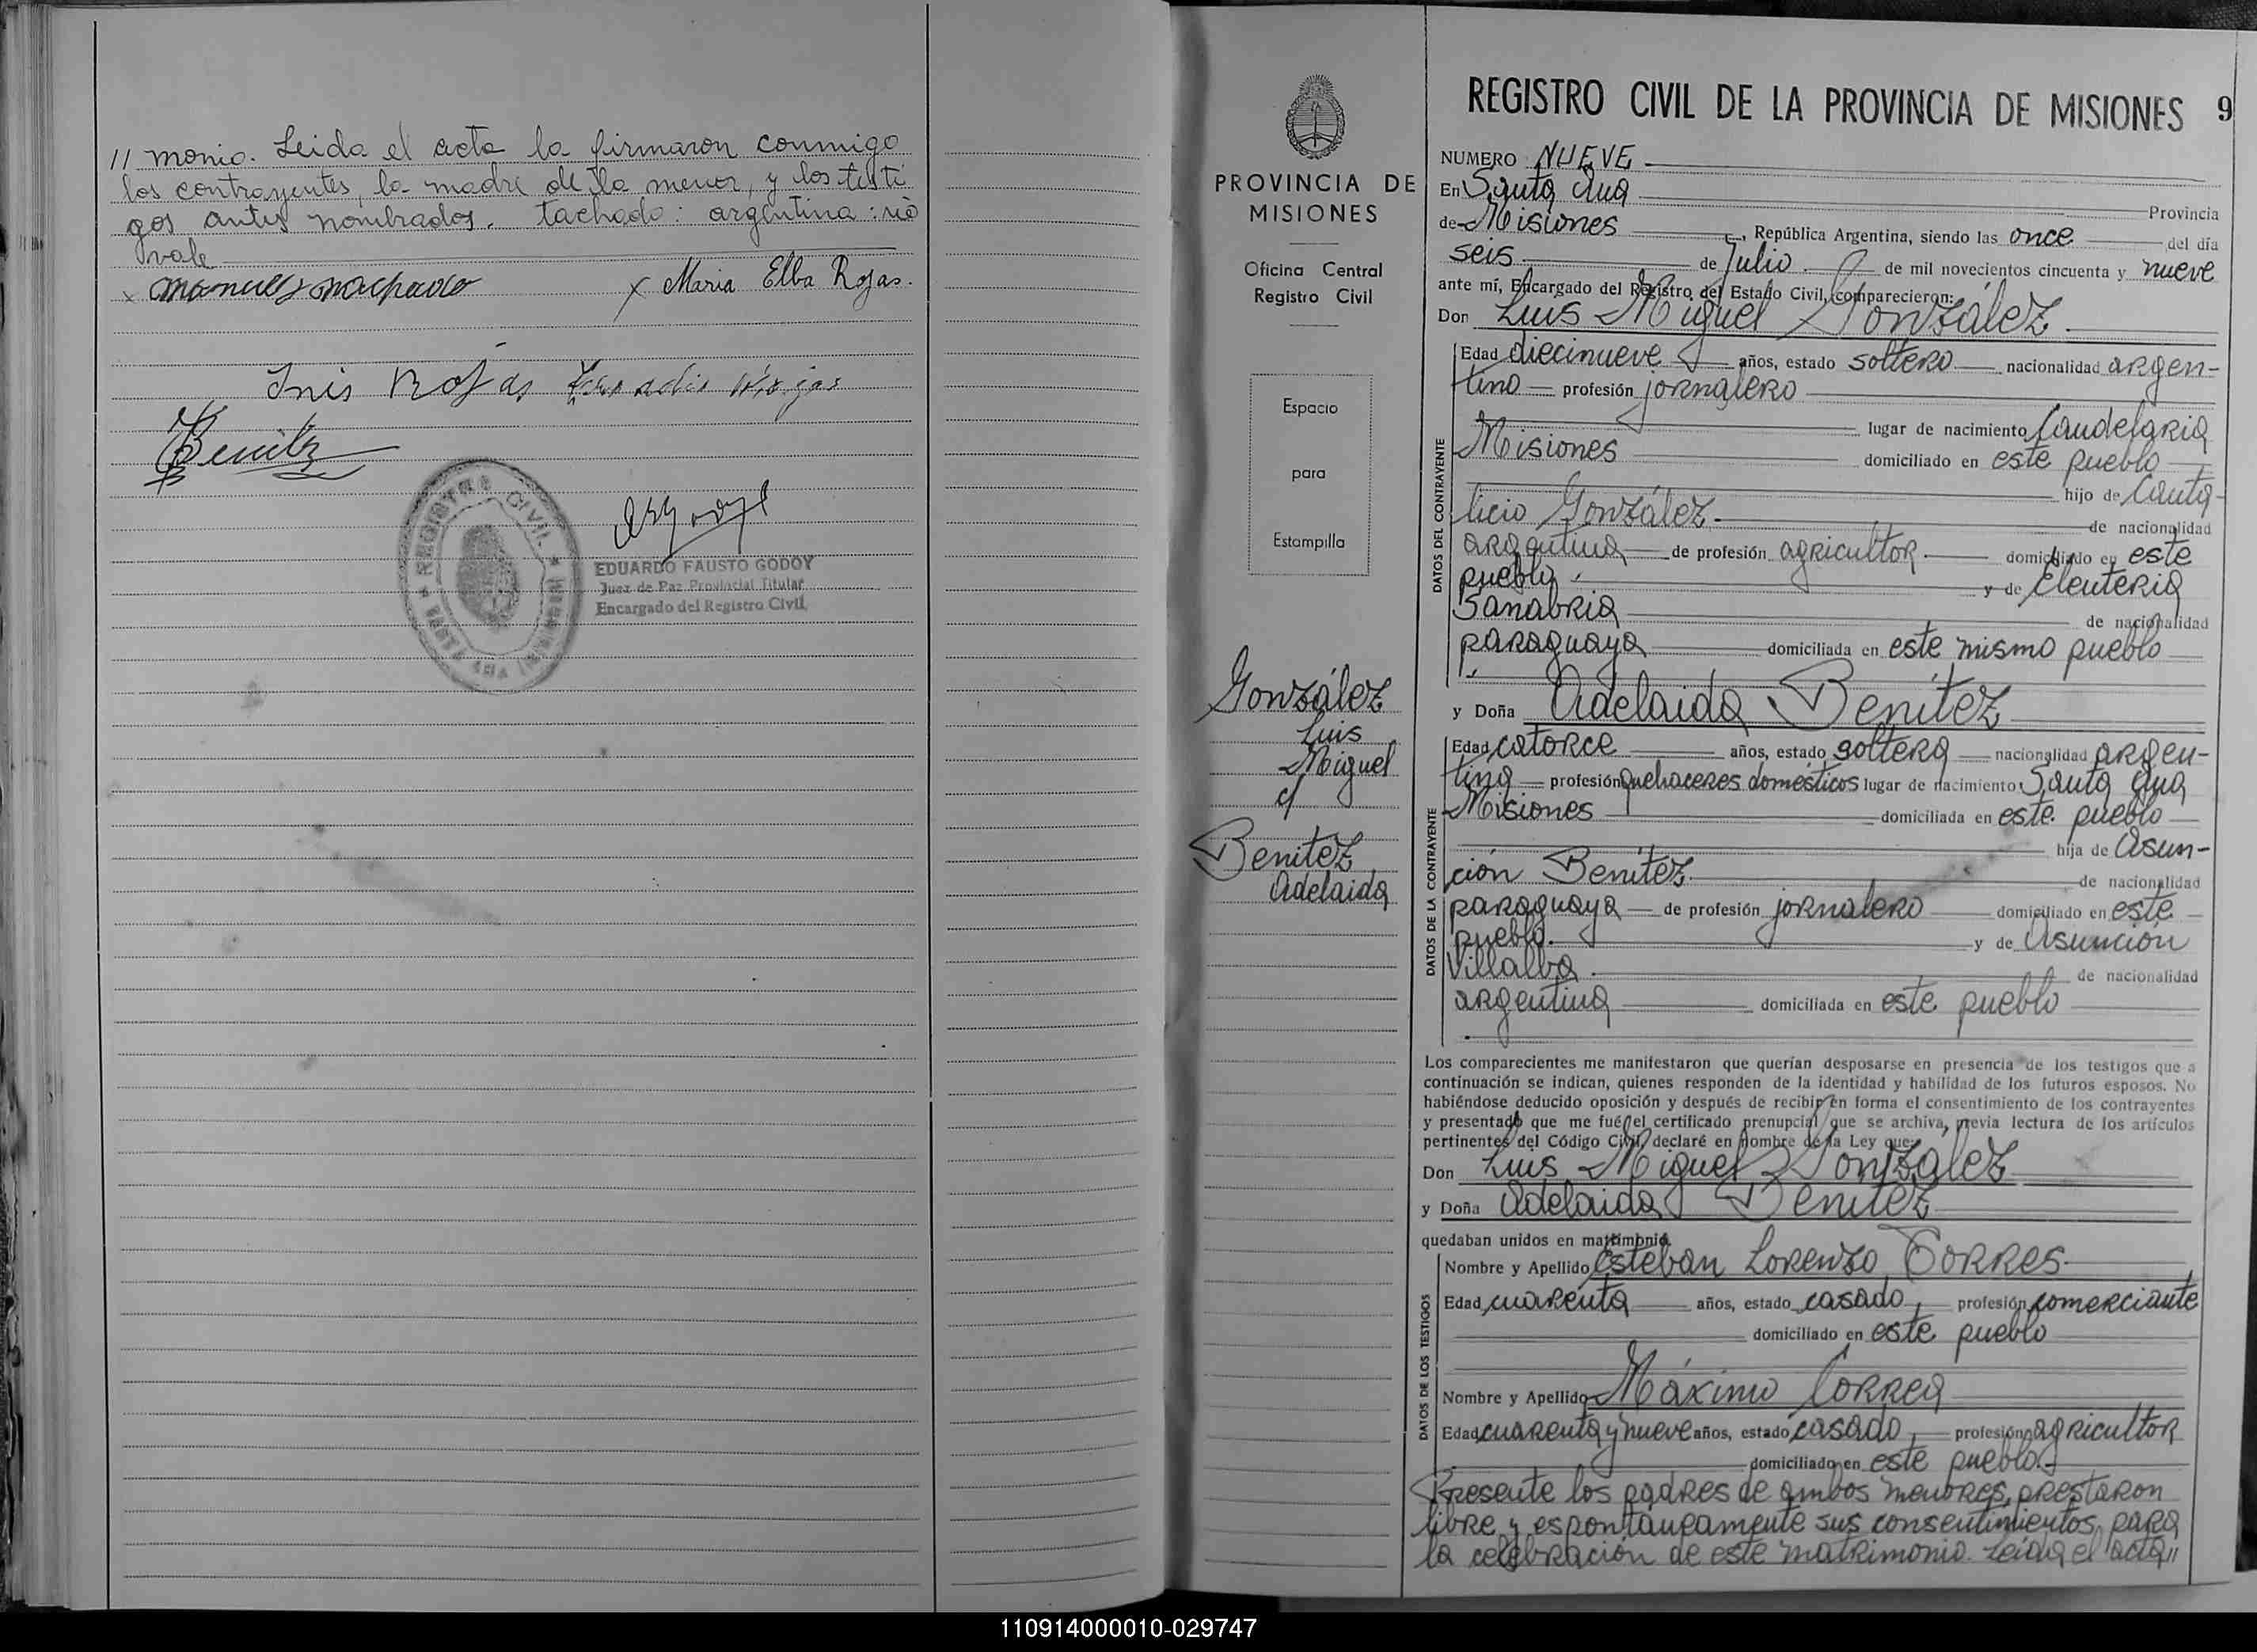 // monio. Leida el acta la firmaron conmigo
los contrayentes, la madre de la menor, y los testi
gos antes nombrados. tachado: argentina: no
vale
x Manuel Machado x Maria Elba Rojas.
Inis Rojas Rojas
Benitez
REGISTRO CIVIL
EDUARDO FAUSTO GODOY
Juez de Paz Provincial Titular
Encargado del Registro Civil
PROVINCIA DE
MISIONES
Oficina Central
Registro Civil
Espacio
para
Estampilla
González
Luis
Miguel
c/
Benitez
Adelaida
REGISTRO CIVIL DE LA PROVINCIA DE MISIONES 9
NUMERO NUEVE
En Santa Ana
Provincia
de Misiones, República Argentina, siendo las once del día
seis de Julio de mil novecientos cincuenta y nueve
ante mí, Encargado del Registro del Estado Civil, comparecieron:
Don Luis Miguel González
DATOS DEL CONTRAYENTE
Edad diecinueve años, estado soltero nacionalidad argen-
tino profesión jornalero
lugar de nacimiento Candelaria
Misiones domiciliado en este pueblo
hijo de Canta-
licio González de nacionalidad
argentina de profesión agricultor domiciliado en este
pueblo y de Eleuteria
Sanabria de nacionalidad
paraguaya domiciliada en este mismo pueblo
y Doña Adelaida Benítez
DATOS DE LA CONTRAYENTE
Edad catorce años, estado soltera nacionalidad argen-
tina profesión quehaceres domésticos lugar de nacimiento Santa Ana
Misiones domiciliada en este pueblo
hija de Asun-
ción Benítez de nacionalidad
paraguaya de profesión jornalero domiciliado en este
pueblo. y de Asunción
Villalba de nacionalidad
argentina domiciliada en este pueblo
Los comparecientes me manifestaron que querían desposarse en presencia de los testigos que a
continuación se indican, quienes responden de la identidad y habilidad de los futuros esposos. No
habiéndose deducido oposición y después de recibir en forma el consentimiento de los contrayentes
y presentado que me fué el certificado prenupcial que se archiva, previa lectura de los artículos
pertinentes del Código Civil, declaré en nombre de la Ley que:
Don Luis Miguel González
y Doña Adelaida Benitez
quedaban unidos en matrimonio.
DATOS DE LOS TESTIGOS
Nombre y Apellido Esteban Lorenzo Torres
Edad cuarenta años, estado casado, profesión comerciante
domiciliado en este pueblo
Nombre y Apellido Máximo Correa
Edad cuarenta y nueve años, estado casado, profesión agricultor
domiciliado en este pueblo.
Presente los padres de ambos menores, prestaron
libre y espontaneamente sus consentimientos para
la celebración de este matrimonio. Leida el acta//
110914000010-029747